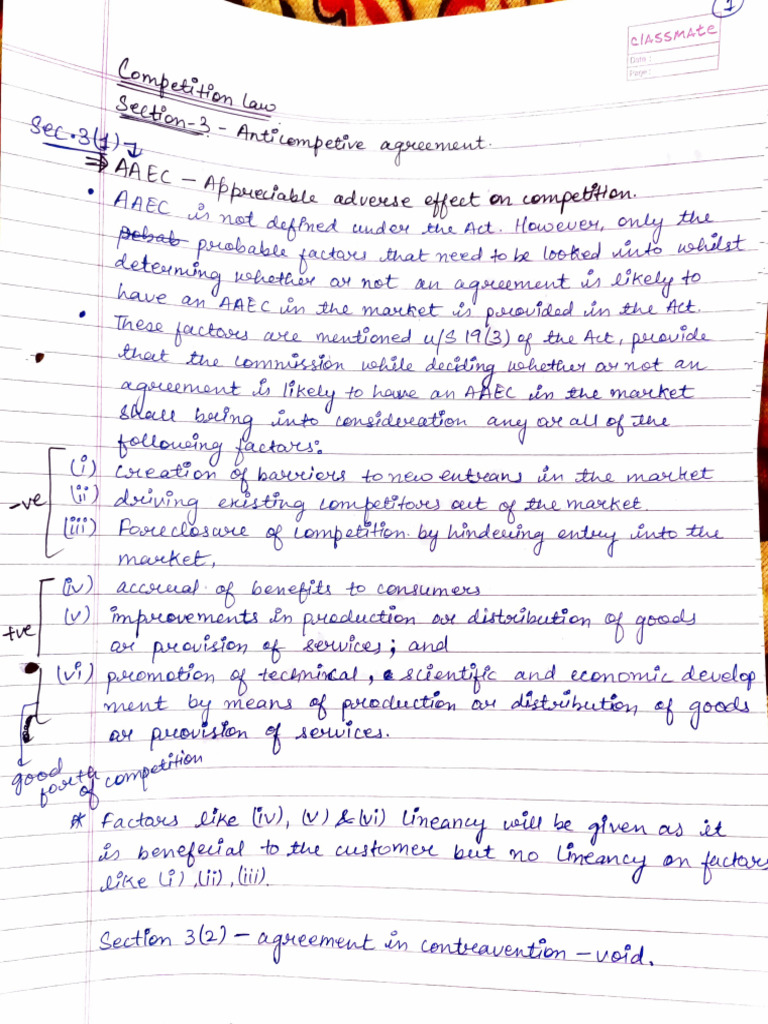 1
classmate
Date :
Page :
Competition Law
Section-3 - Anticompetive agreement.
Sec. 3(1)
⇒ AAEC - Appreciable adverse effect on competition.
• AAEC is not defined under the Act. However, only the
probable factors that need to be looked into whilst
determing whether or not an agreement is likely to
have an AAEC in the market is provided in the Act.
• These factors are mentioned u/s 19(3) of the Act, provide
that the commission while deciding whether or not an
agreement is likely to have an AAEC in the market
shall bring into consideration any or all of the
following factors:
-ve
(i) creation of barriers to new entrans in the market
(ii) driving existing competitors out of the market.
(iii) Foreclosure of competition by hindering entry into the
market,
+ve
(iv) accrual of benefits to consumers
(v) improvements in production or distribution of goods
or provision of services; and
(vi) promotion of technical, scientific and economic develop
ment by means of production or distribution of goods
or provision of services.
good
forth
of competition
* Factors like (iv), (v) & (vi) lineancy will be given as it
is benefecial to the customer but no lineancy on factors
like (i), (ii), (iii).
Section 3(2) - agreement in contravention - void.